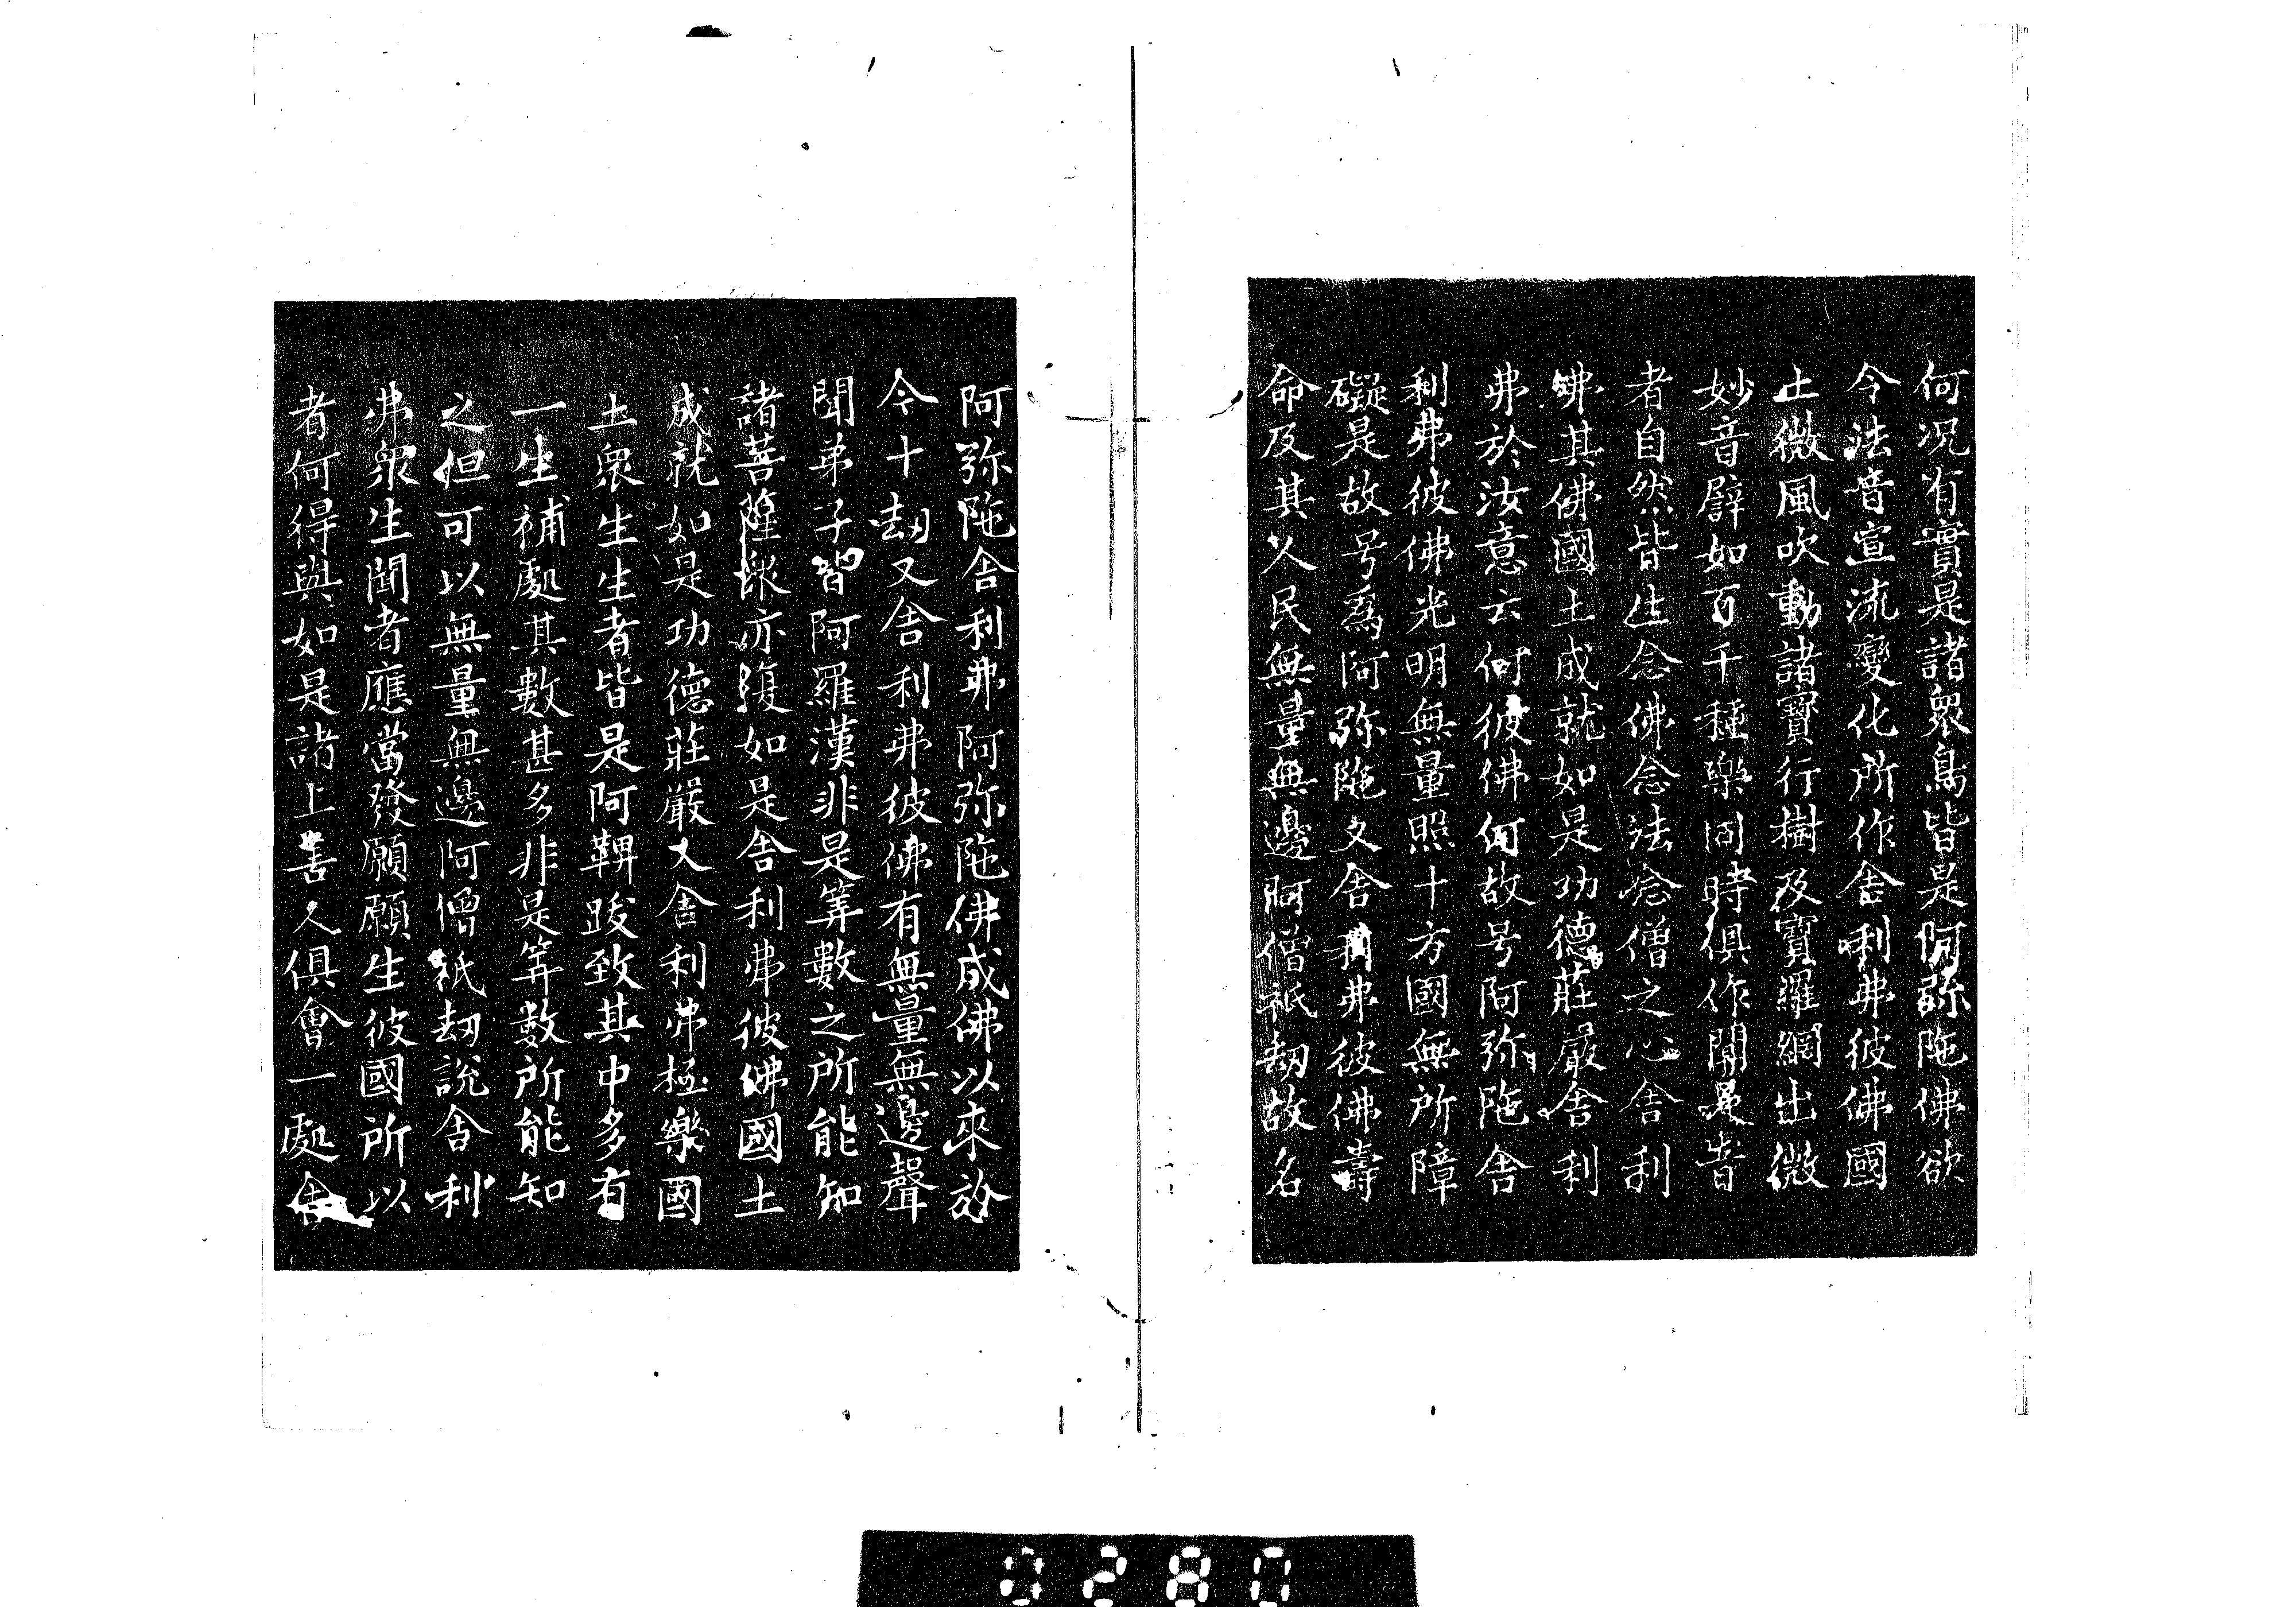 何况有實是諸衆鳥皆是阿弥陁佛欲
令法音宣流變化所作舍利弗彼佛國
土微風吹動諸寶行樹及寶羅網出微
妙音譬如百千種樂同時俱作聞是音
者自然皆生念佛念法念僧之心舍利
弗其佛國土成就如是功德莊嚴舍利
弗於汝意云何彼佛何故号阿弥陁舍
利弗彼佛光明無量照十方國無所障
礙是故号爲阿弥陁又舍利弗彼佛壽
命及其人民無量無邊阿僧祇劫故名
阿弥陁舍利弗阿弥陁佛成佛以來於
今十劫又舍利弗彼佛有無量無邊聲
聞弟子皆阿羅漢非是筭數之所能知
諸菩薩衆亦復如是舍利弗彼佛國土
成就如是功德莊嚴又舍利弗極樂國
土衆生生者皆是阿鞞跋致其中多有
一生補處其數甚多非是筭數所能知
之但可以無量無邊阿僧祇劫說舍利
弗衆生聞者應當發願願生彼國所以
者何得與如是諸上善人俱會一處舍
0280